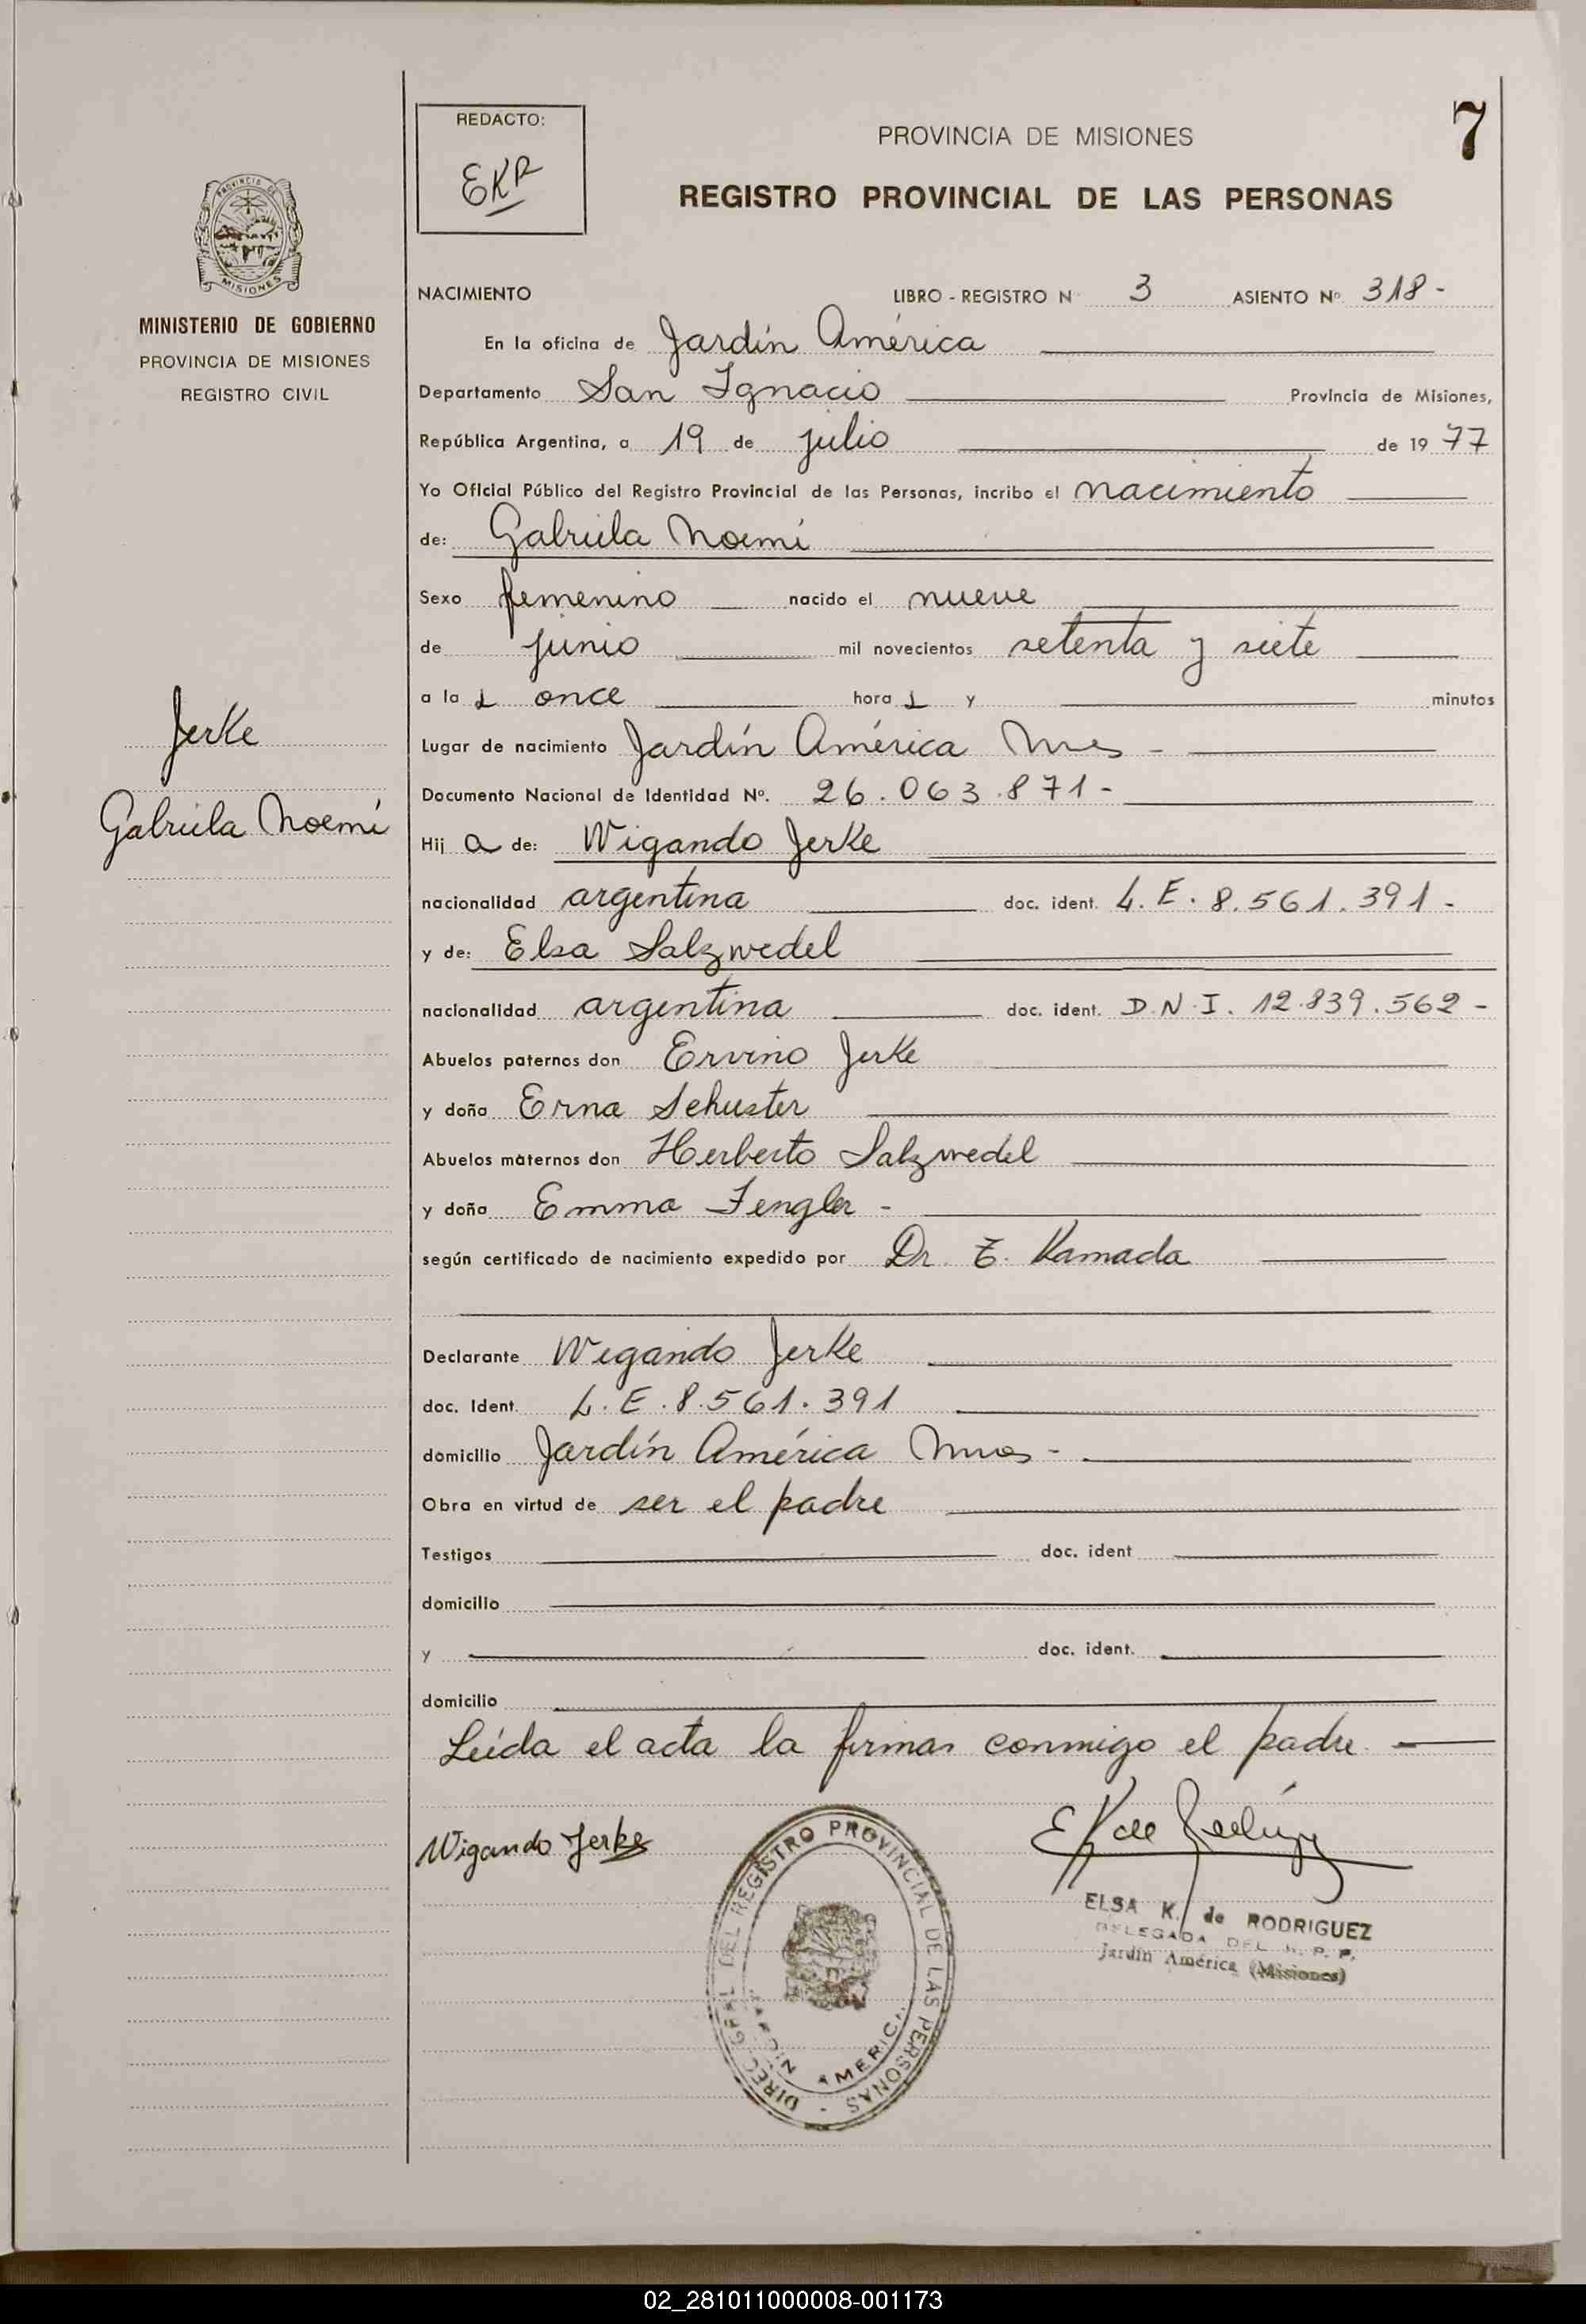 7
REDACTO:
EKR
PROVINCIA DE MISIONES
REGISTRO PROVINCIAL DE LAS PERSONAS
PROVINCIA DE
MISIONES
MINISTERIO DE GOBIERNO
PROVINCIA DE MISIONES
REGISTRO CIVIL
NACIMIENTO LIBRO - REGISTRO N 3 ASIENTO Nº 318 -
En la oficina de Jardín América
Departamento San Ignacio Provincia de Misiones,
República Argentina, a 19 de julio de 19 77
Yo Oficial Público del Registro Provincial de las Personas, incribo el nacimiento
de: Gabriela Noemí
Sexo femenino nacido el nueve
de junio mil novecientos setenta y siete
a la s once hora s y minutos
Lugar de nacimiento Jardín América Mnes -
Documento Nacional de Identidad Nº. 26.063.871 -
Hij a de: Wigando Jerke
nacionalidad argentina doc. ident. L. E. 8.561.391 -
y de: Elsa Salzwedel
nacionalidad argentina doc. ident. D.N.I. 12.839.562 -
Abuelos paternos don Ervino Jerke
y doña Erna Schuster
Abuelos maternos don Herberto Salzwedel
y doña Emma Fengler -
según certificado de nacimiento expedido por Dr. Kamada
Declarante Wigando Jerke
doc. Ident. L. E. 8.561.391
domicilio Jardín América Mnes -
Obra en virtud de ser el padre
Testigos doc. ident
domicilio
y doc. ident.
domicilio
Leída el acta la firman conmigo el padre
Jerke
Gabriela Noemí
Wigando Jerke
DIREC. GRAL. DEL REGISTRO PROVINCIAL DE LAS PERSONAS -
JARDIN AMERICA
ELSA K. de RODRIGUEZ
DELEGADA DEL R. P. P.
Jardín América (Misiones)
02_281011000008-001173